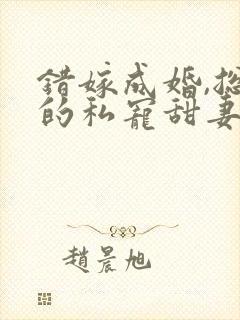 錯嫁成婚,
的私寵甜妻
趙晨旭